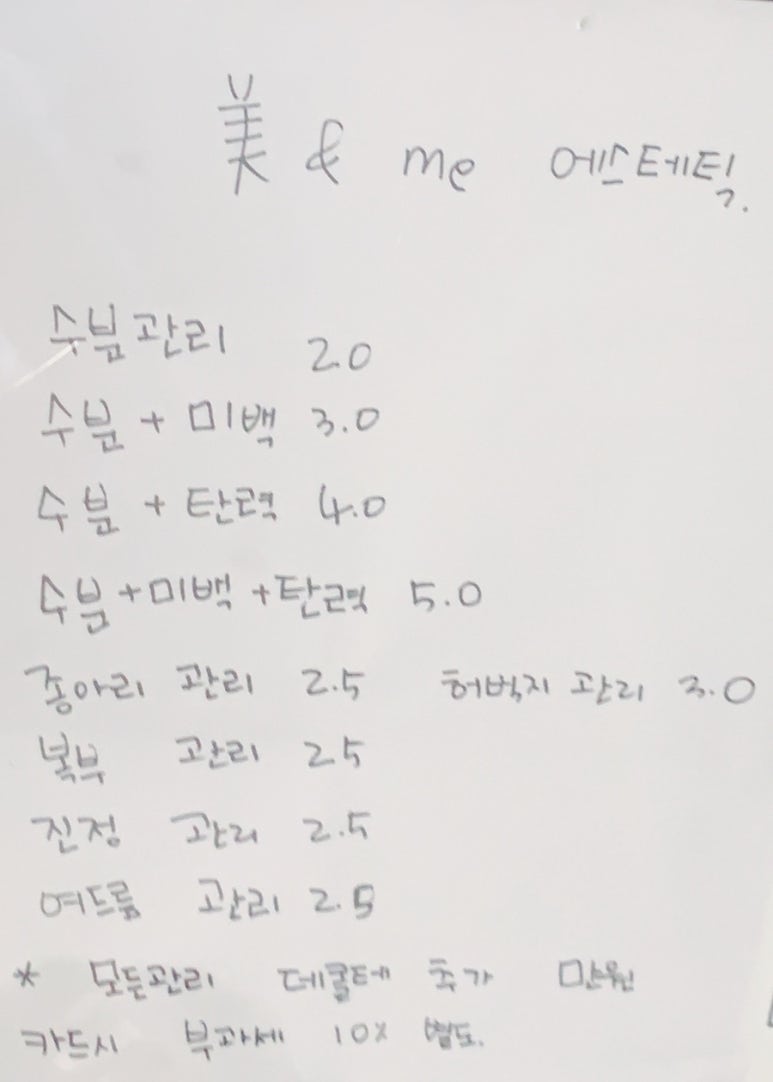 美 & me 에스테틱.
수분관리 2.0
수분 + 미백 3.0
수분 + 탄력 4.0
수분+미백+탄력 5.0
종아리 관리 2.5 허벅지 관리 3.0
복부 관리 2.5
진정 관리 2.5
여드름 관리 2.5
* 모든관리 데콜테 추가 만원
카드시 부과세 10% 별도.